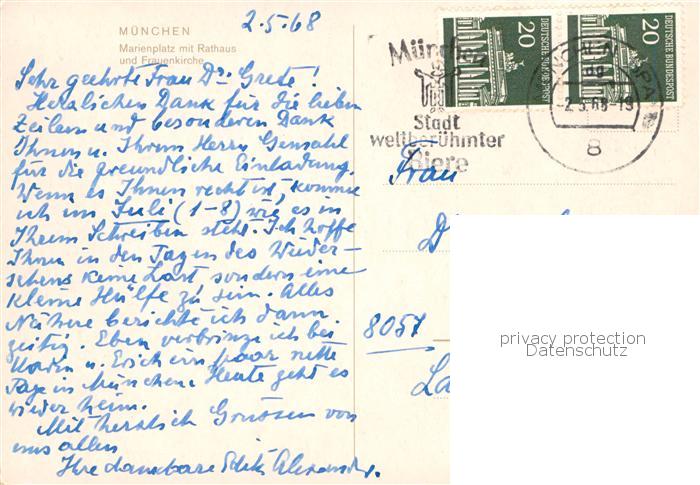 2.5.68
MÜNCHEN
Marienplatz mit Rathaus
und Frauenkirche
Sehr geehrte Frau Dr. Grete!
Herzlichen Dank für die lieben
Zeilen und besonderen Dank
Ihnen u. Ihrem Herrn Gemahl
für die freundliche Einladung.
Wenn es Ihnen recht ist, komme
ich im Juli (1-8) wie es in
Ihrem Schreiben steht. Ich hoffe
Ihnen in den Tagen des Wieder-
sehens keine Last sondern eine
kleine Hülfe zu sein. Alles
Nähere berichte ich dann
zeitig. Eben verbringe ich bei
u. Erich ein paar nette
Tage in München. Heute geht es
wieder heim.
Mit herzlich Grüssen von
uns allen
Ihre dankbare Edith Alexander.
20 DEUTSCHE BUNDESPOST
20 DEUTSCHE BUNDESPOST
München
Stadt
weltberühmter
Biere
-2.5.68-19
8
Frau
D
8051
La
privacy protection
Datenschutz